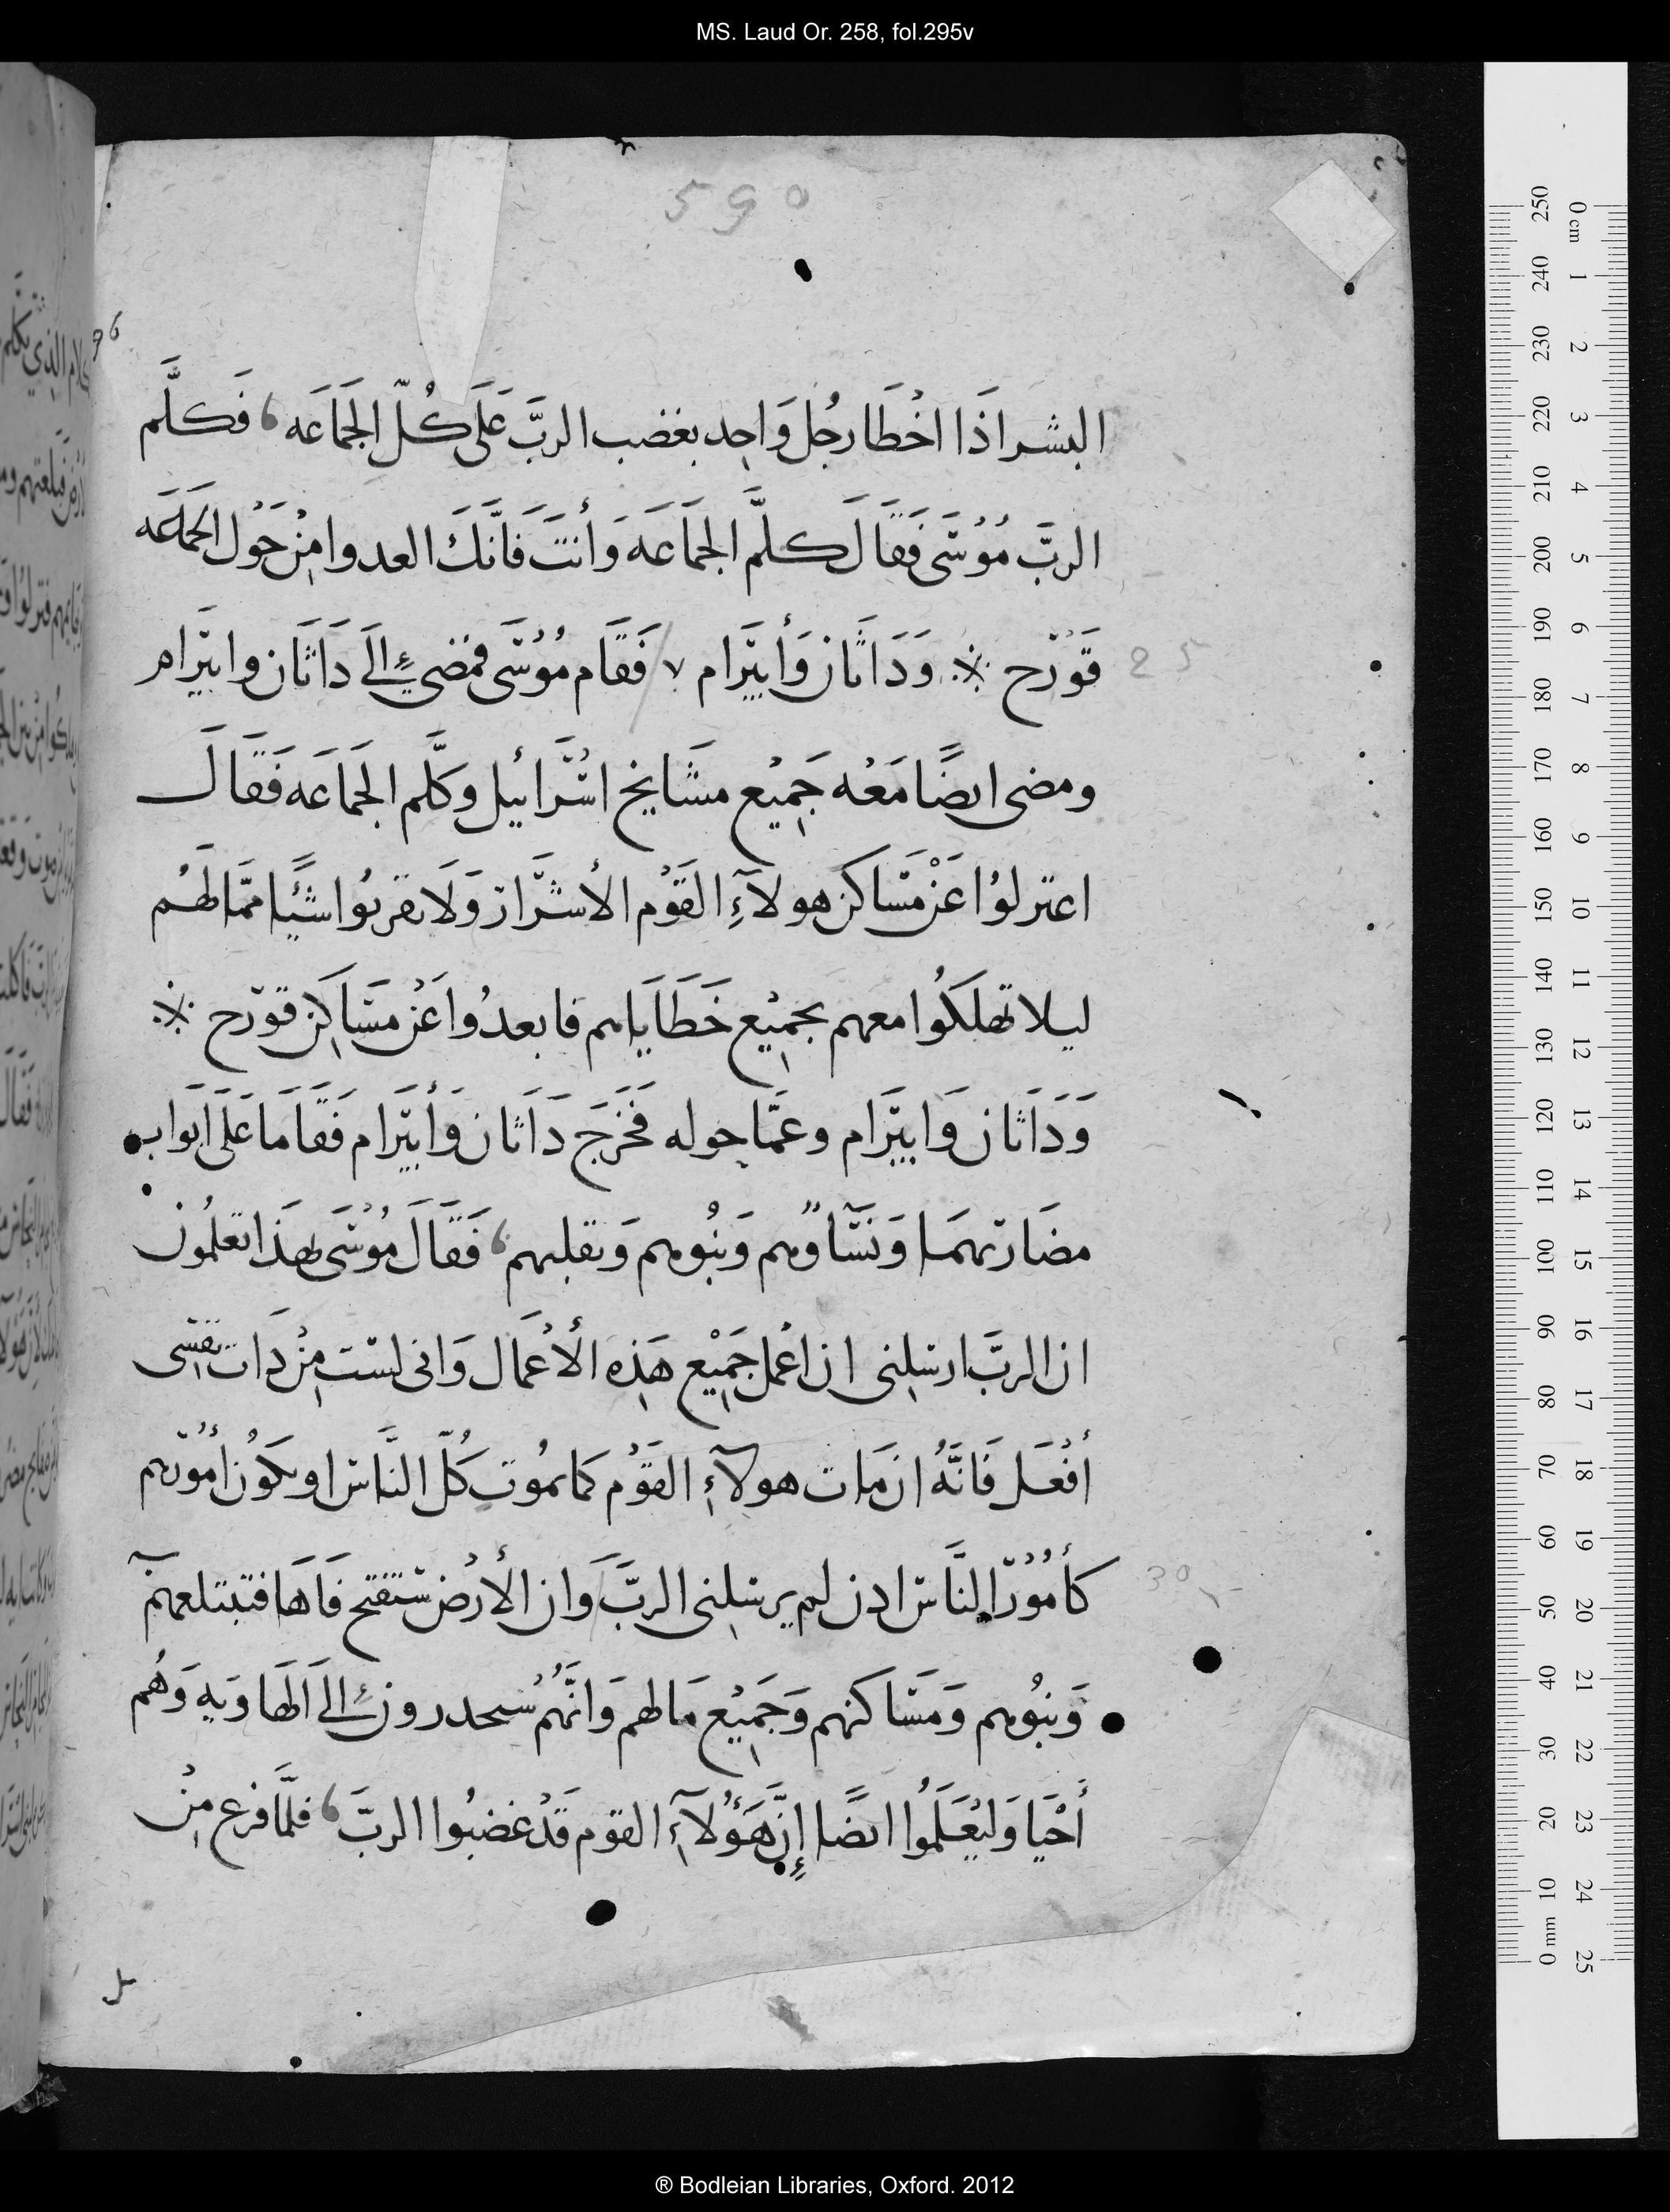 MS. Laud Or. 258, fol.295v
590
البشر اذَا اخْطَا رجُل وَاحِد بغضب الربَّ عَلَى كُلّ الجَمَاعَه، فَكلَّم
الربَّ مُوْسَى فَقَالَ كلَّم الجمَاعَه وَأنتَ فَانَّكَ العدوا مِنْ حَوْل الجَمَاعَه
قَوْرَح ※ وَدَاثَان وَأبيَرام ٧ فَقَام مُوْسَى فمضى إِلَى دَاثَان وابيَرام
ومضى ايضًا مَعْه جَمِيْع مشَايخ اسْرَائيل وكلَّم الجَمَاعَه فَقَالَ
اعتزلوُا عَنْ مَسَاكن هولآءِ القَوْم الأشرَار وَلَا تقربوُا شَيًا ممَّا لَهُم
ليلا تهلكُوا معهم بجميْع خَطَايَاهم فابعدُوا عَنْ مسَاكِن قورَح ※
وَدَاثَان وَابيَرَام وعَمَّا حوله فَخَرَجَ دَاثَان وَأبيَرَام فَقَامَا عَلَى ابَواب
مضَاربهمَا وَنسَآوهم وَبنُوهم وَثقلهم، فَقَالَ مُوْسَى بهَذَا تعلمُون
ان الربَّ ارسَلِنى ان اعْمل جَمِيْع هَذِه الأعْمَال وَانى لست مِنْ ذَات نفسِى
أفْعَل فَانَّهُ ان مَات هولآءِ القَوْم كما يموُت كُلّ النَّاس او يكوُن أموْرهم
كأموُر النَّاس اذن لم يرسَلِنى الربَّ وان الأرْض ستفتح فَاهَا فتبتلعهم
وَبنُوهم وَمسَاكنهم وَجَمِيْع مَا لهم وَانَّهُم سيحدرون إلَى الهَاويه وَهُم
أحْيَا وَليُعَلَموُا ايضًا إنَّ هَؤُلآءِ القوم قَدْ غضبُوا الربَّ، فلمَّا فرغ مِنْ
25
30
® Bodleian Libraries, Oxford. 2012